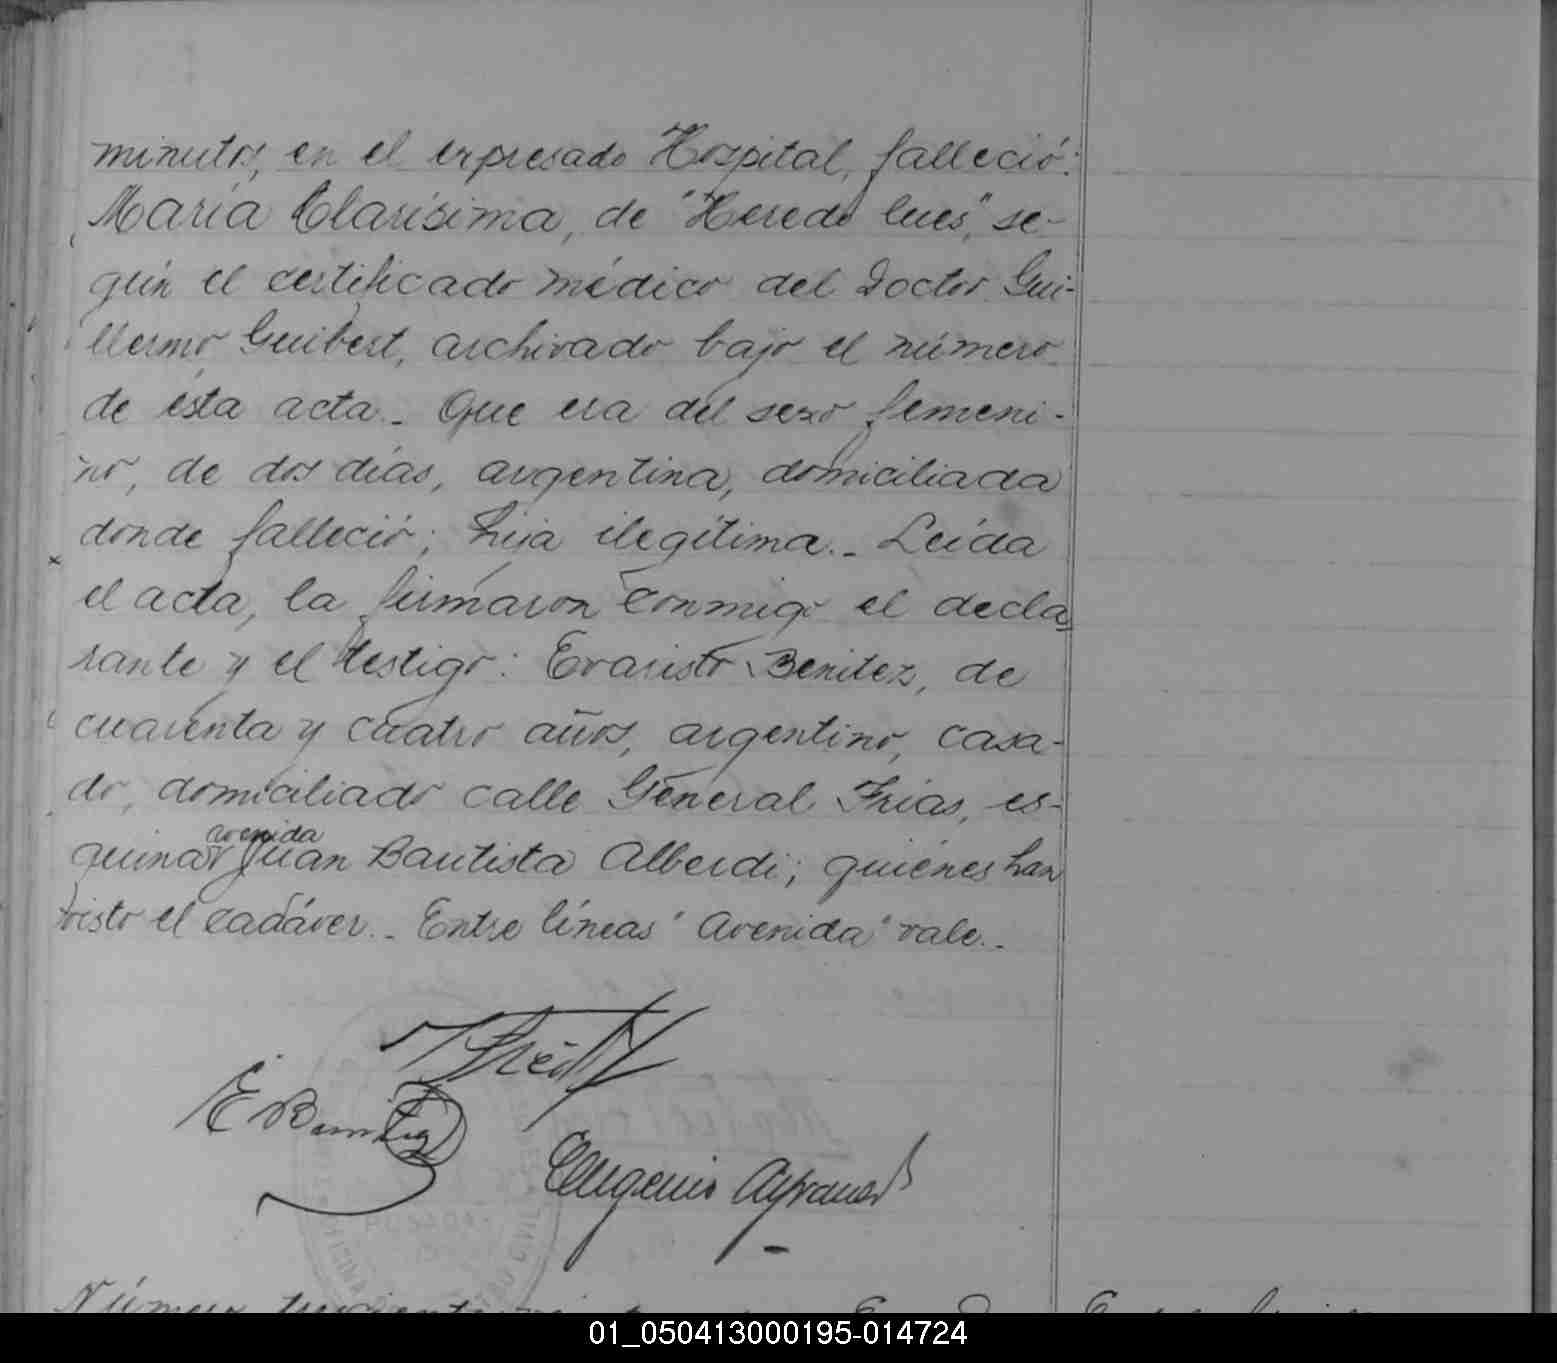 minutos, en el expresado Hospital, falleció:
María Clarísima, de "Heredo lues", se-
gún el certificado médico del Doctor Gui-
llermo Guibert, archivado bajo el número
de ésta acta.- Que era del sexo femeni-
no, de dos días, argentina, domiciliada
donde falleció; hija ilegítima.- Leída
el acta, la firmaron conmigo el decla
rante y el testigo: Evaristo Benitez, de
cuarenta y cuatro años, argentino, casa-
do, domiciliado calle General Frias, es-
avenida
quina Juan Bautista Alberdi; quiénes han
visto el cadáver.- Entre líneas "Avenida" vale.-
E Benitez
Eugenio
POSADAS
OFICINA
CIVIL
Número
01_050413000195-014724